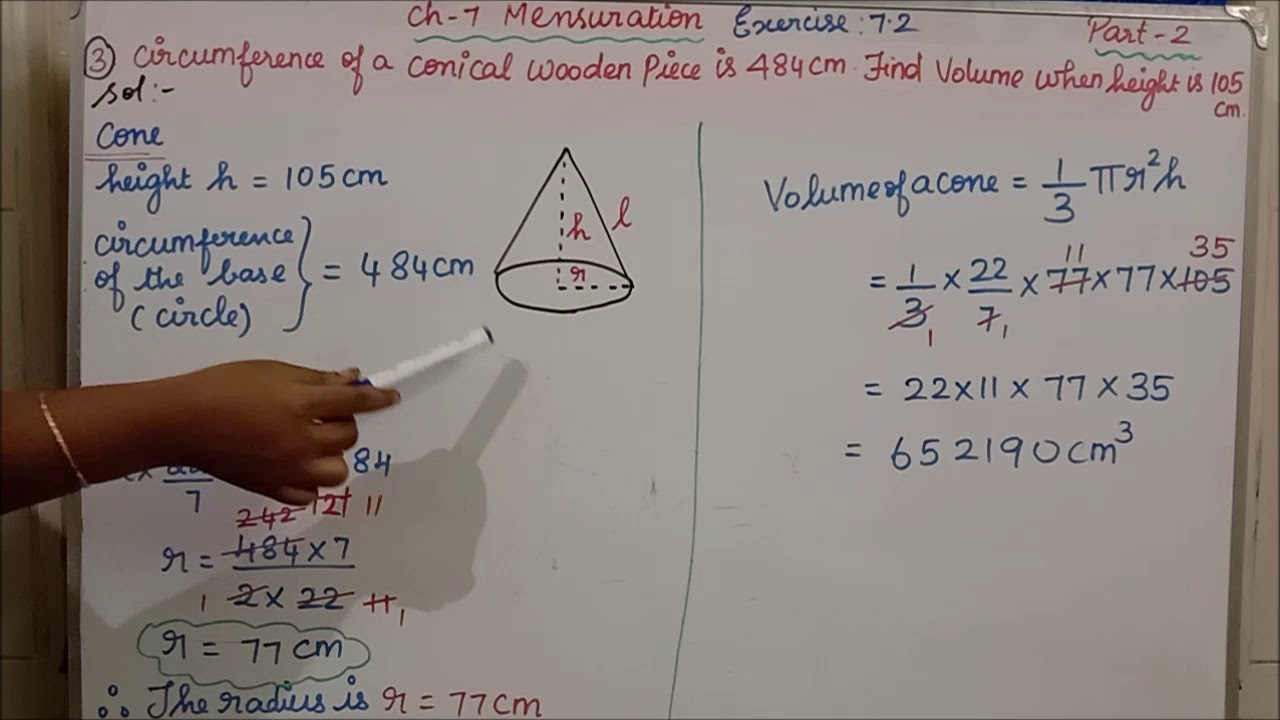 Ch-7 Mensuration Exercise: 7.2 Part-2
③ Circumference of a conical wooden Piece is 484cm. Find Volume when height is 105 cm.
Sol:-
Cone
height h = 105 cm
circumference of the base (circle) } = 484cm
h l
r
84
7
242 121 11
r = 484 × 7
1 2 × 22 11 1
r = 77 cm
∴ The radius is r = 77 cm
Volume of a cone = 1/3 πr²h
11 35
= 1/3 × 22/7 × 77 × 77 × 105
1 1
= 22×11 × 77 × 35
= 652190 cm³